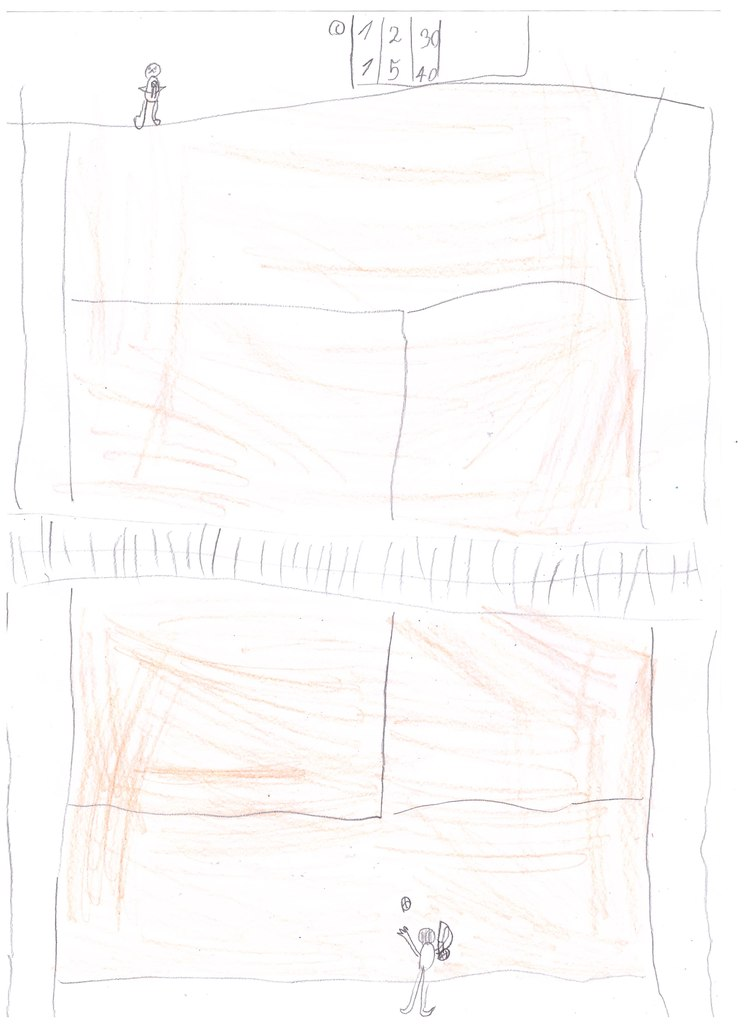 1 2 30
1 5 40